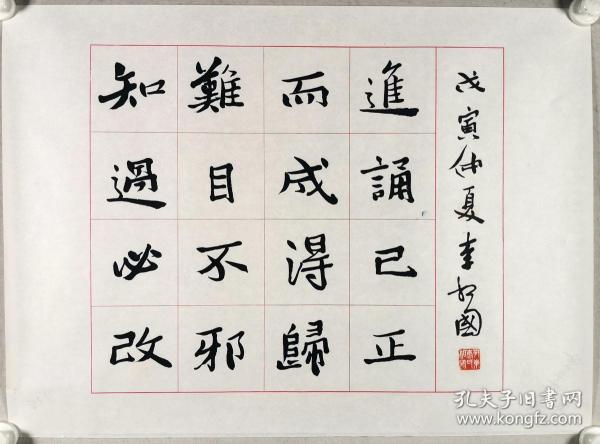 知難而進
過目成誦
必不得已
改邪歸正
戊寅仲夏李國
孔夫子旧书网
kongfz.com